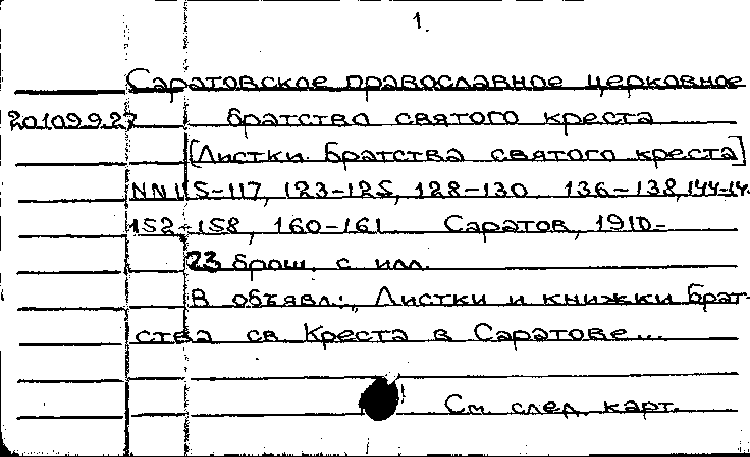 1.
Саратовское православное церковное
20.109.9.27 братство святого креста
[Листки Братства святого креста]
NN 115-117, 123-125, 128-130 136-138, 144-14
152-158, 160-161 Саратов, 1910-
23 брош. с илл.
В объявл.: „Листки и книжки Брат-
ства св. Креста в Саратове...
См. след. карт.